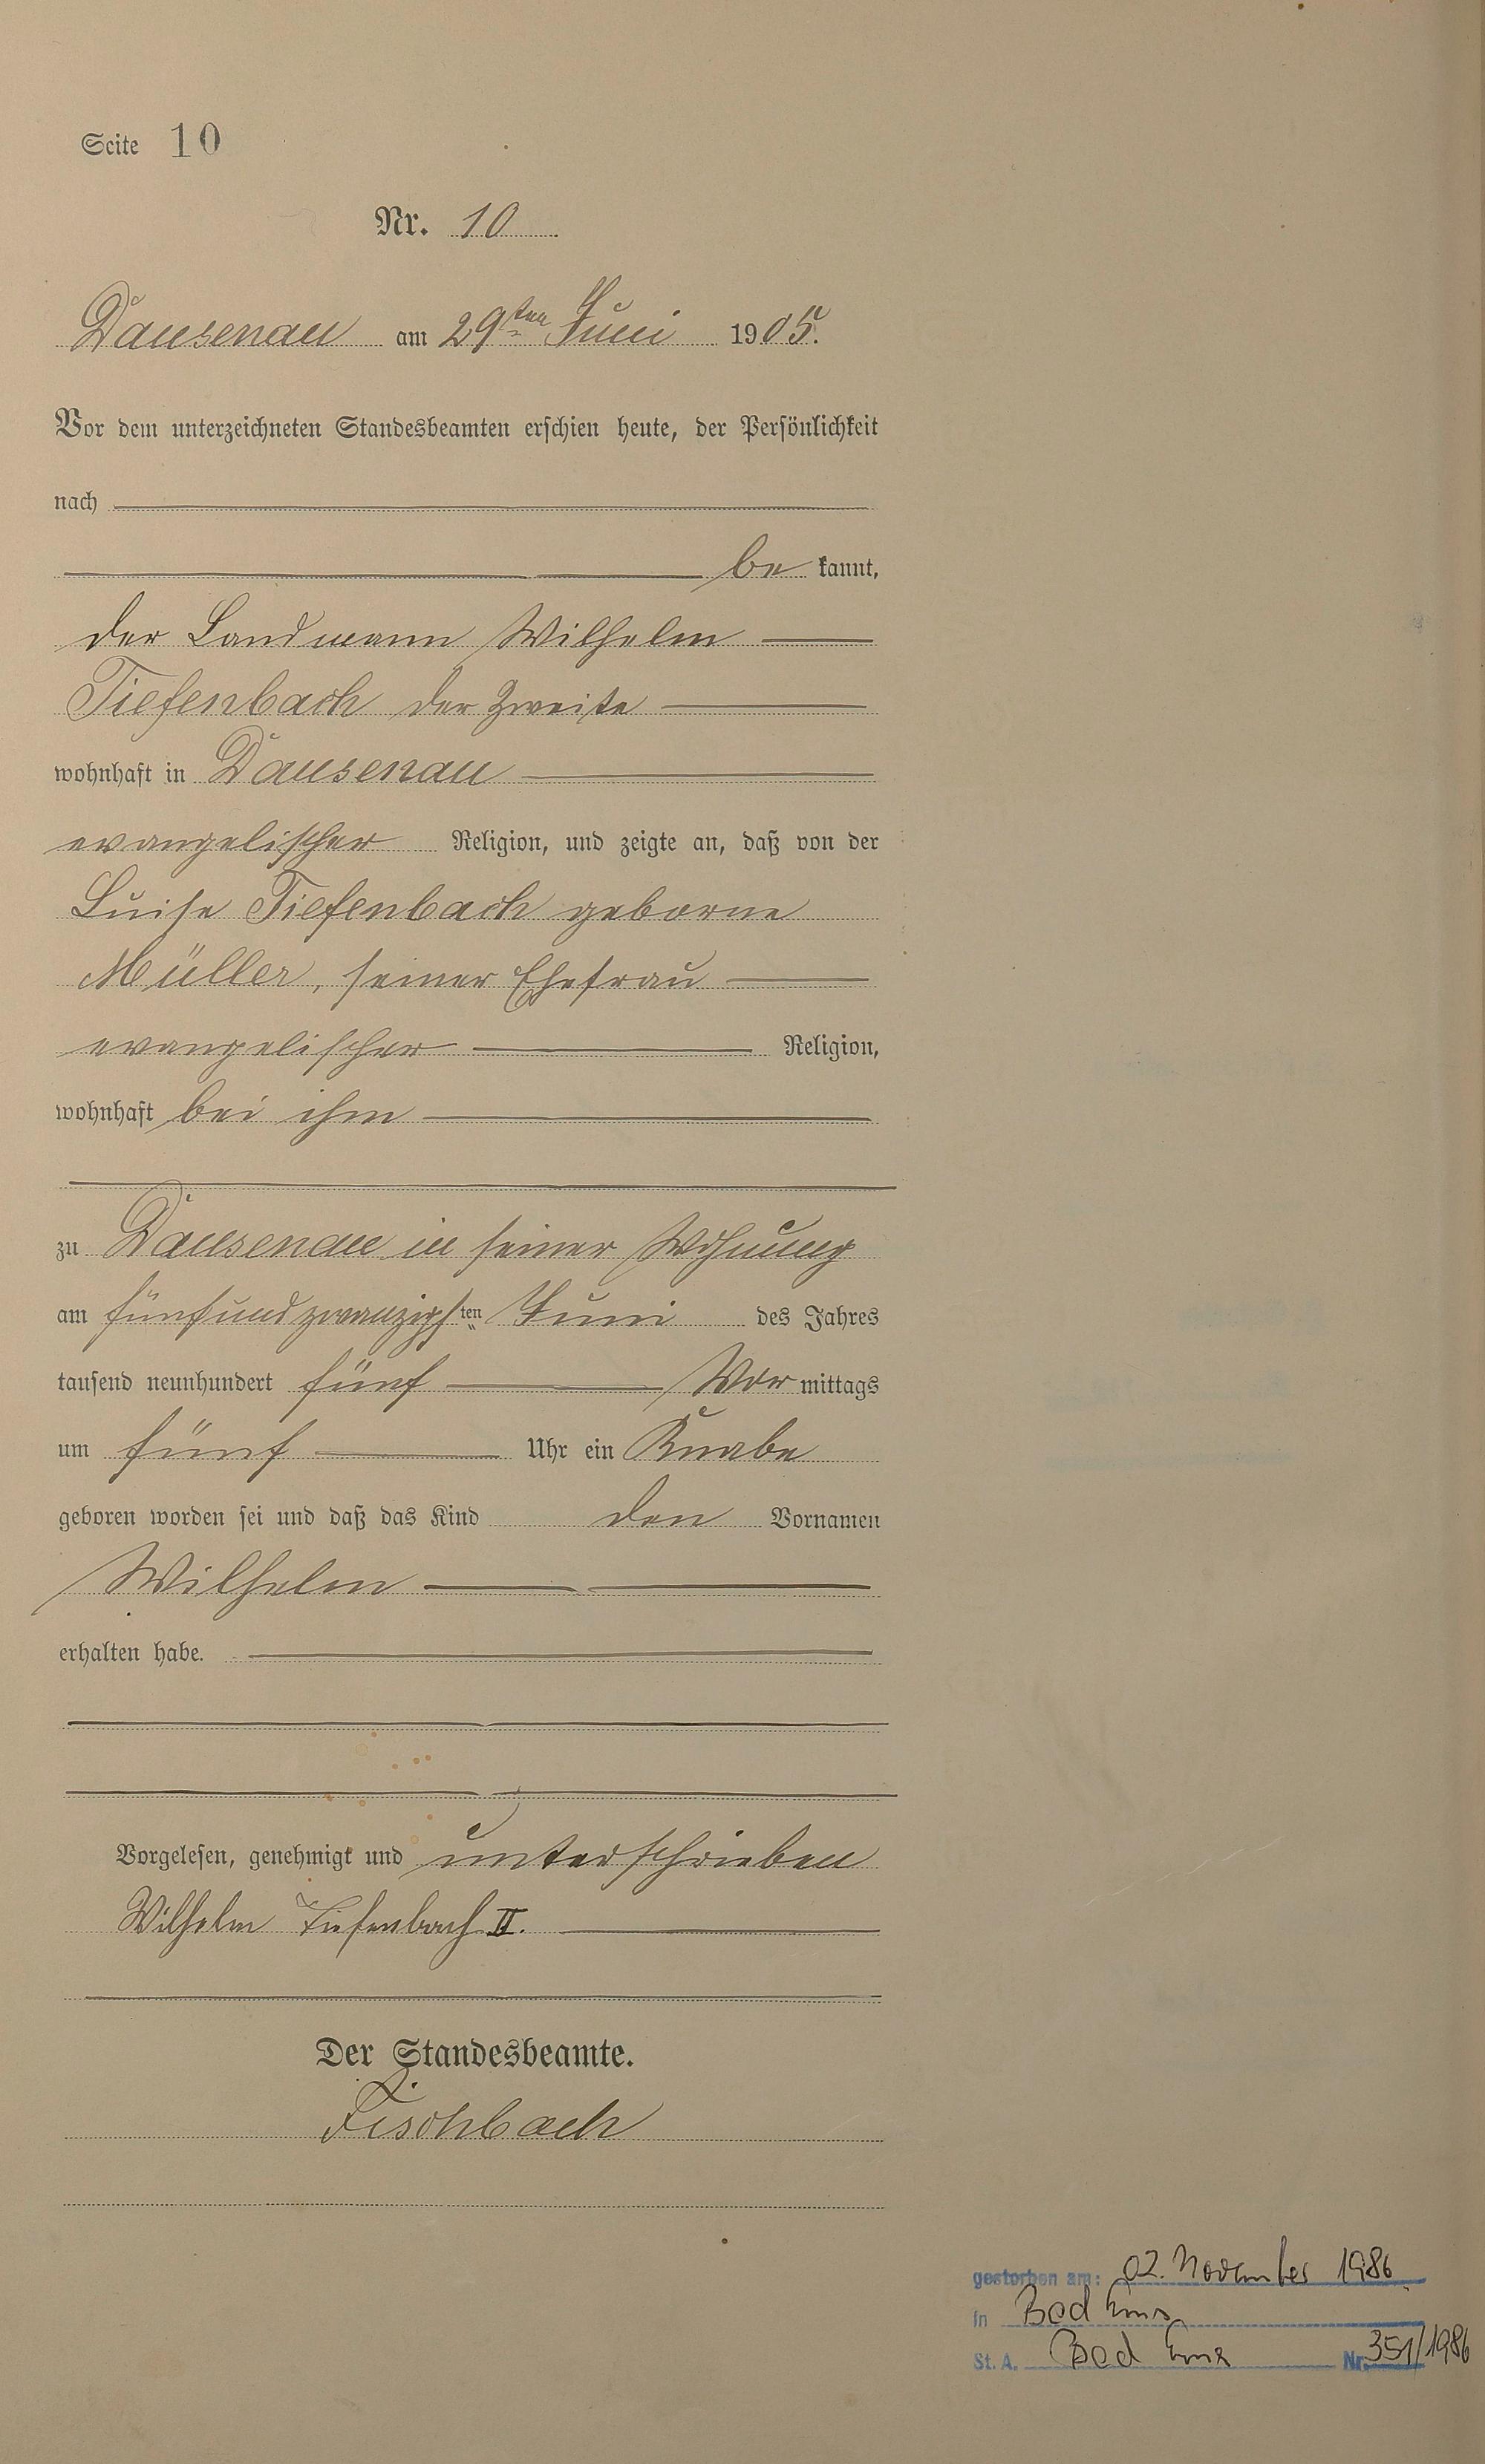 Seite 10
Nr. 10
Dausenau am 29ten Juni 1905.
Vor dem unterzeichneten Standesbeamten erschien heute, der Persönlichkeit
nach
be kannt,
der Landmann Wilhelm
Tiefenbach der Zweite
wohnhaft in Dausenau
evangelischer Religion, und zeigte an, daß von der
Luise Tiefenbach geborne
Müller, seiner Ehefrau
evangelischer Religion,
wohnhaft bei ihm
zu Dausenau in seiner Wohnung
am fünfundzwanzigsten Juni des Jahres
tausend neunhundert fünf Vor mittags
um fünf Uhr ein Knabe
geboren worden sei und daß das Kind den Vornamen
Wilhelm
erhalten habe.
Vorgelesen, genehmigt und unterschrieben
Wilhelm Tiefenbach II.
Der Standesbeamte.
Fischbach
gestorben am: 02. November 1986
in Bad Ems
St. A. Bad Ems Nr. 351/1986